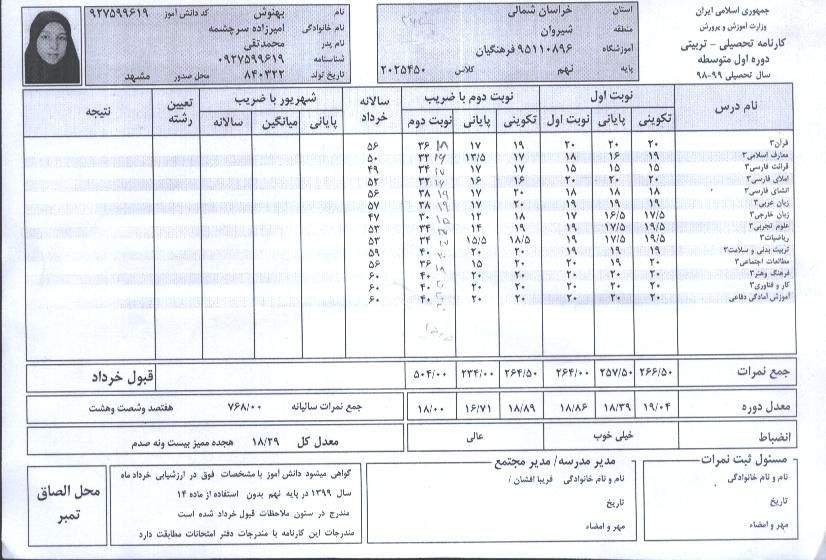 جمهوری اسلامی ایران
وزارت آموزش و پرورش
کارنامه تحصیلی - تربیتی
دوره اول متوسطه
سال تحصیلی ۹۹-۹۸
استان خراسان شمالی
منطقه شیروان
آموزشگاه ۹۵۱۱۰۸۹۶ فرهنگیان
پایه نهم کلاس ۲۰۲۵۴۵۰
نام بهنوش کد دانش آموز ۰۹۲۷۵۹۹۶۱۹
نام خانوادگی امیرزاده سرچشمه
نام پدر محمدتقی
شناسنامه ۰۹۲۷۵۹۹۶۱۹
تاریخ تولد ۸۴۰۳۲۲ محل صدور مشهد
نام درس نوبت اول نوبت دوم با ضریب سالانه خرداد شهریور با ضریب تعیین رشته نتیجه
تکوینی پایانی نوبت اول تکوینی پایانی نوبت دوم پایانی میانگین سالانه
قران۳ ۲۰ ۲۰ ۲۰ ۱۹ ۱۷ ۳۶ ۵۶
معارف اسلامی۳ ۱۹ ۱۶ ۱۸ ۱۷ ۱۳/۵ ۳۲ ۵۰
قرائت فارسی۳ ۱۵ ۱۵ ۱۵ ۱۷ ۱۷ ۳۴ ۴۹
املای فارسی۳ ۲۰ ۲۰ ۲۰ ۱۶ ۱۶ ۳۲ ۵۲
انشای فارسی۳ ۱۸ ۱۸ ۱۸ ۳۸ ۵۶
زبان عربی۳ ۱۹ ۱۹ ۱۹ ۲۰ ۱۷ ۳۸ ۵۷
زبان خارجی۳ ۱۷/۵ ۱۶/۵ ۱۷ ۱۸ ۱۲ ۳۰ ۴۷
علوم تجربی۳ ۱۹/۵ ۱۷/۵ ۱۹ ۱۹ ۱۴ ۳۴ ۵۳
ریاضیات۳ ۱۹/۵ ۱۷/۵ ۱۹ ۱۸/۵ ۱۵/۵ ۳۴ ۵۳
تربیت بدنی و سلامت۳ ۲۰ ۱۹ ۲۰ ۲۰ ۴۰ ۵۹
مطالعات اجتماعی۳ ۲۰ ۱۹ ۲۰ ۲۰ ۱۵ ۳۶ ۵۶
فرهنگ وهنر۳ ۲۰ ۲۰ ۲۰ ۲۰ ۲۰ ۴۰ ۶۰
کار و فناوری۳ ۲۰ ۲۰ ۲۰ ۲۰ ۲۰ ۴۰ ۶۰
آموزش آمادگی دفاعی ۲۰ ۲۰ ۲۰ ۲۰ ۲۰ ۴۰ ۶۰
جمع نمرات ۲۶۶/۵۰ ۲۵۷/۵۰ ۲۶۴/۰۰ ۲۶۴/۵۰ ۲۳۴/۰۰ ۵۰۴/۰۰ قبول خرداد
معدل دوره ۱۹/۰۴ ۱۸/۳۹ ۱۸/۸۶ ۱۸/۸۹ ۱۶/۷۱ ۱۸/۰۰ جمع نمرات سالیانه ۷۶۸/۰۰ هفتصد وشصت وهشت
انضباط خیلی خوب عالی معدل کل ۱۸/۲۹ هجده ممیز بیست ونه صدم
مسئول ثبت نمرات
نام و نام خانوادگی
تاریخ
مهر و امضاء
مدیر مدرسه/ مدیر مجتمع
نام و نام خانوادگی فریبا افشان /
تاریخ
مهر و امضاء
گواهی میشود دانش آموز با مشخصات فوق در ارزشیابی خرداد ماه
سال ۱۳۹۹ در پایه نهم بدون استفاده از ماده ۱۴
مندرج در ستون ملاحظات قبول خرداد شده است
مندرجات این کارنامه با مندرجات دفتر امتحانات مطابقت دارد
محل الصاق
تمبر